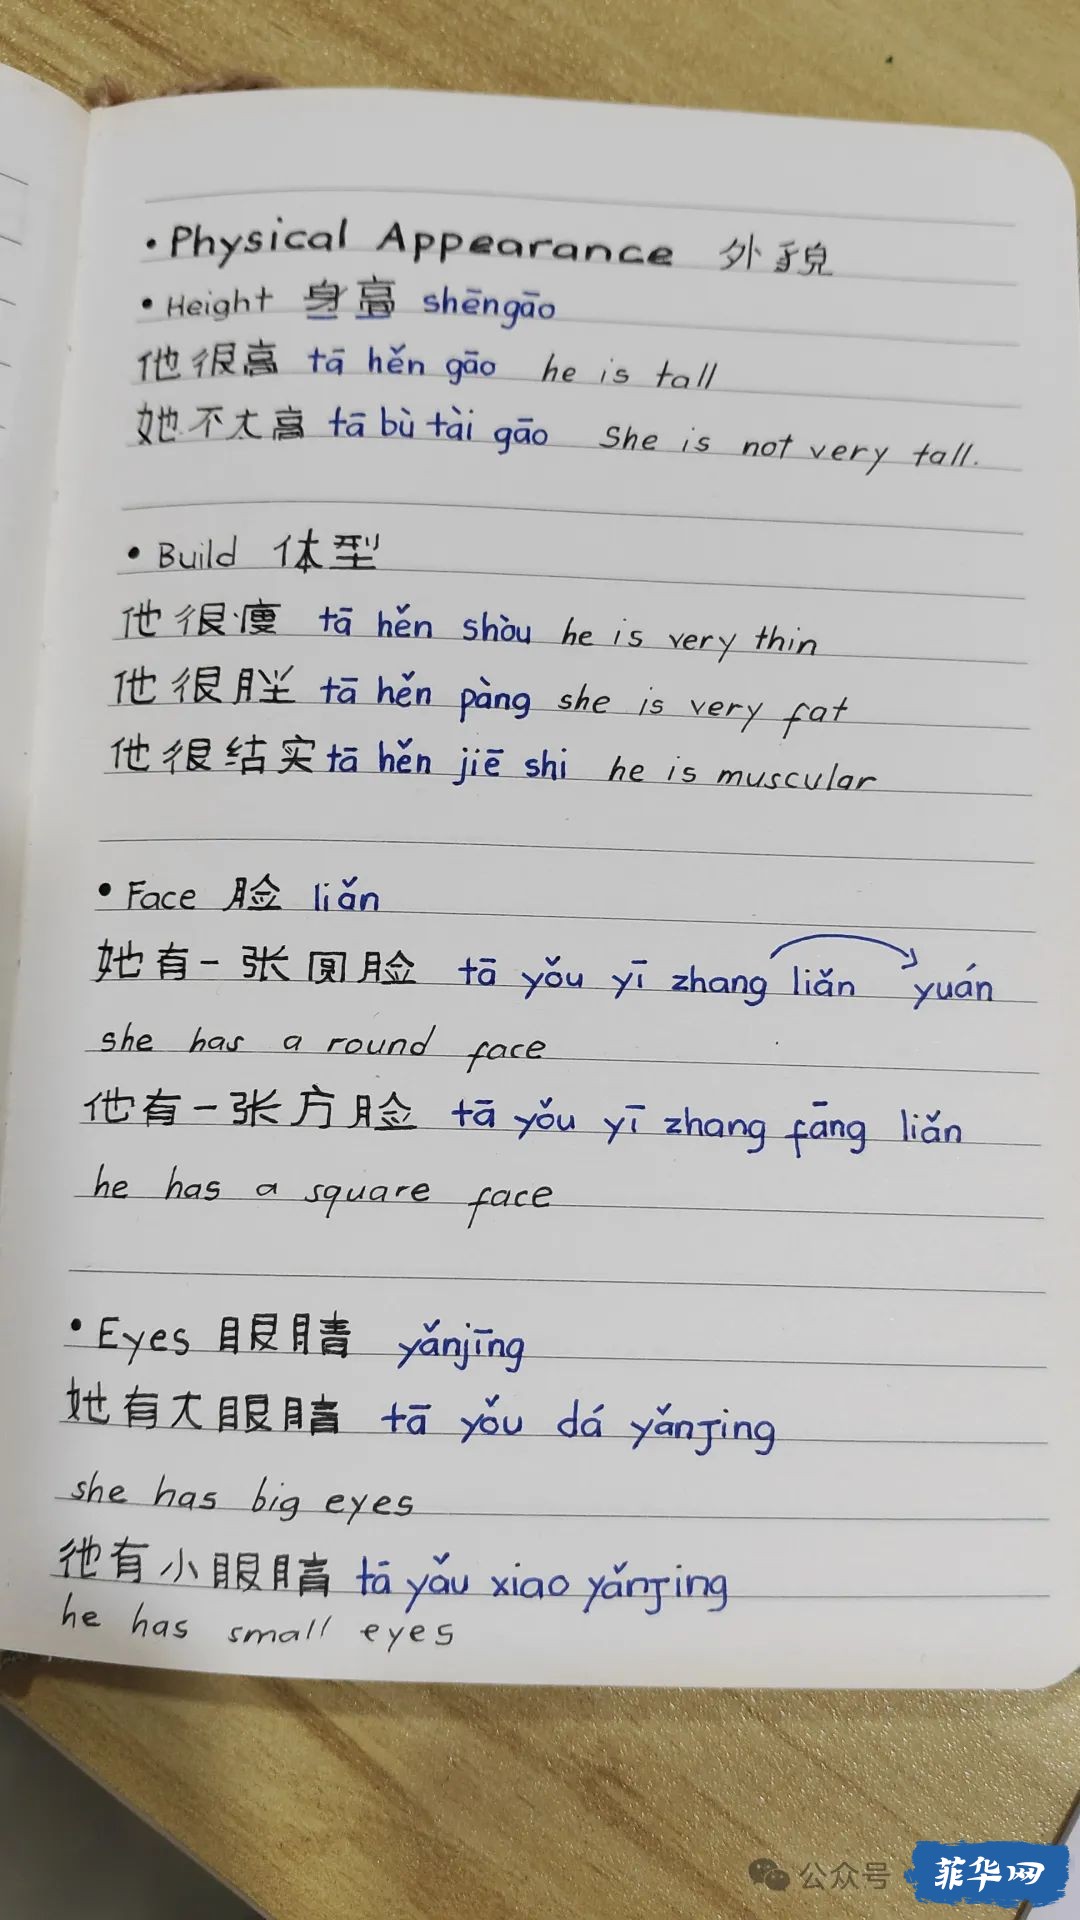 • Physical Appearance 外貌
• Height 身高 shēngāo
他很高 tā hěn gāo he is tall
她不太高 tā bù tài gāo She is not very tall.
• Build 体型
他很瘦 tā hěn shòu he is very thin
他很胖 tā hěn pàng she is very fat
他很结实 tā hěn jiē shi he is muscular
• Face 脸 liǎn
她有一张圆脸 tā yǒu yī zhang liǎn yuán
she has a round face
他有一张方脸 tā yǒu yī zhang fāng liǎn
he has a square face
• Eyes 眼睛 yǎnjīng
她有大眼睛 tā yǒu dá yǎnjing
she has big eyes
他有小眼睛 tā yǎu xiao yǎnjing
he has small eyes
公众号 菲华网